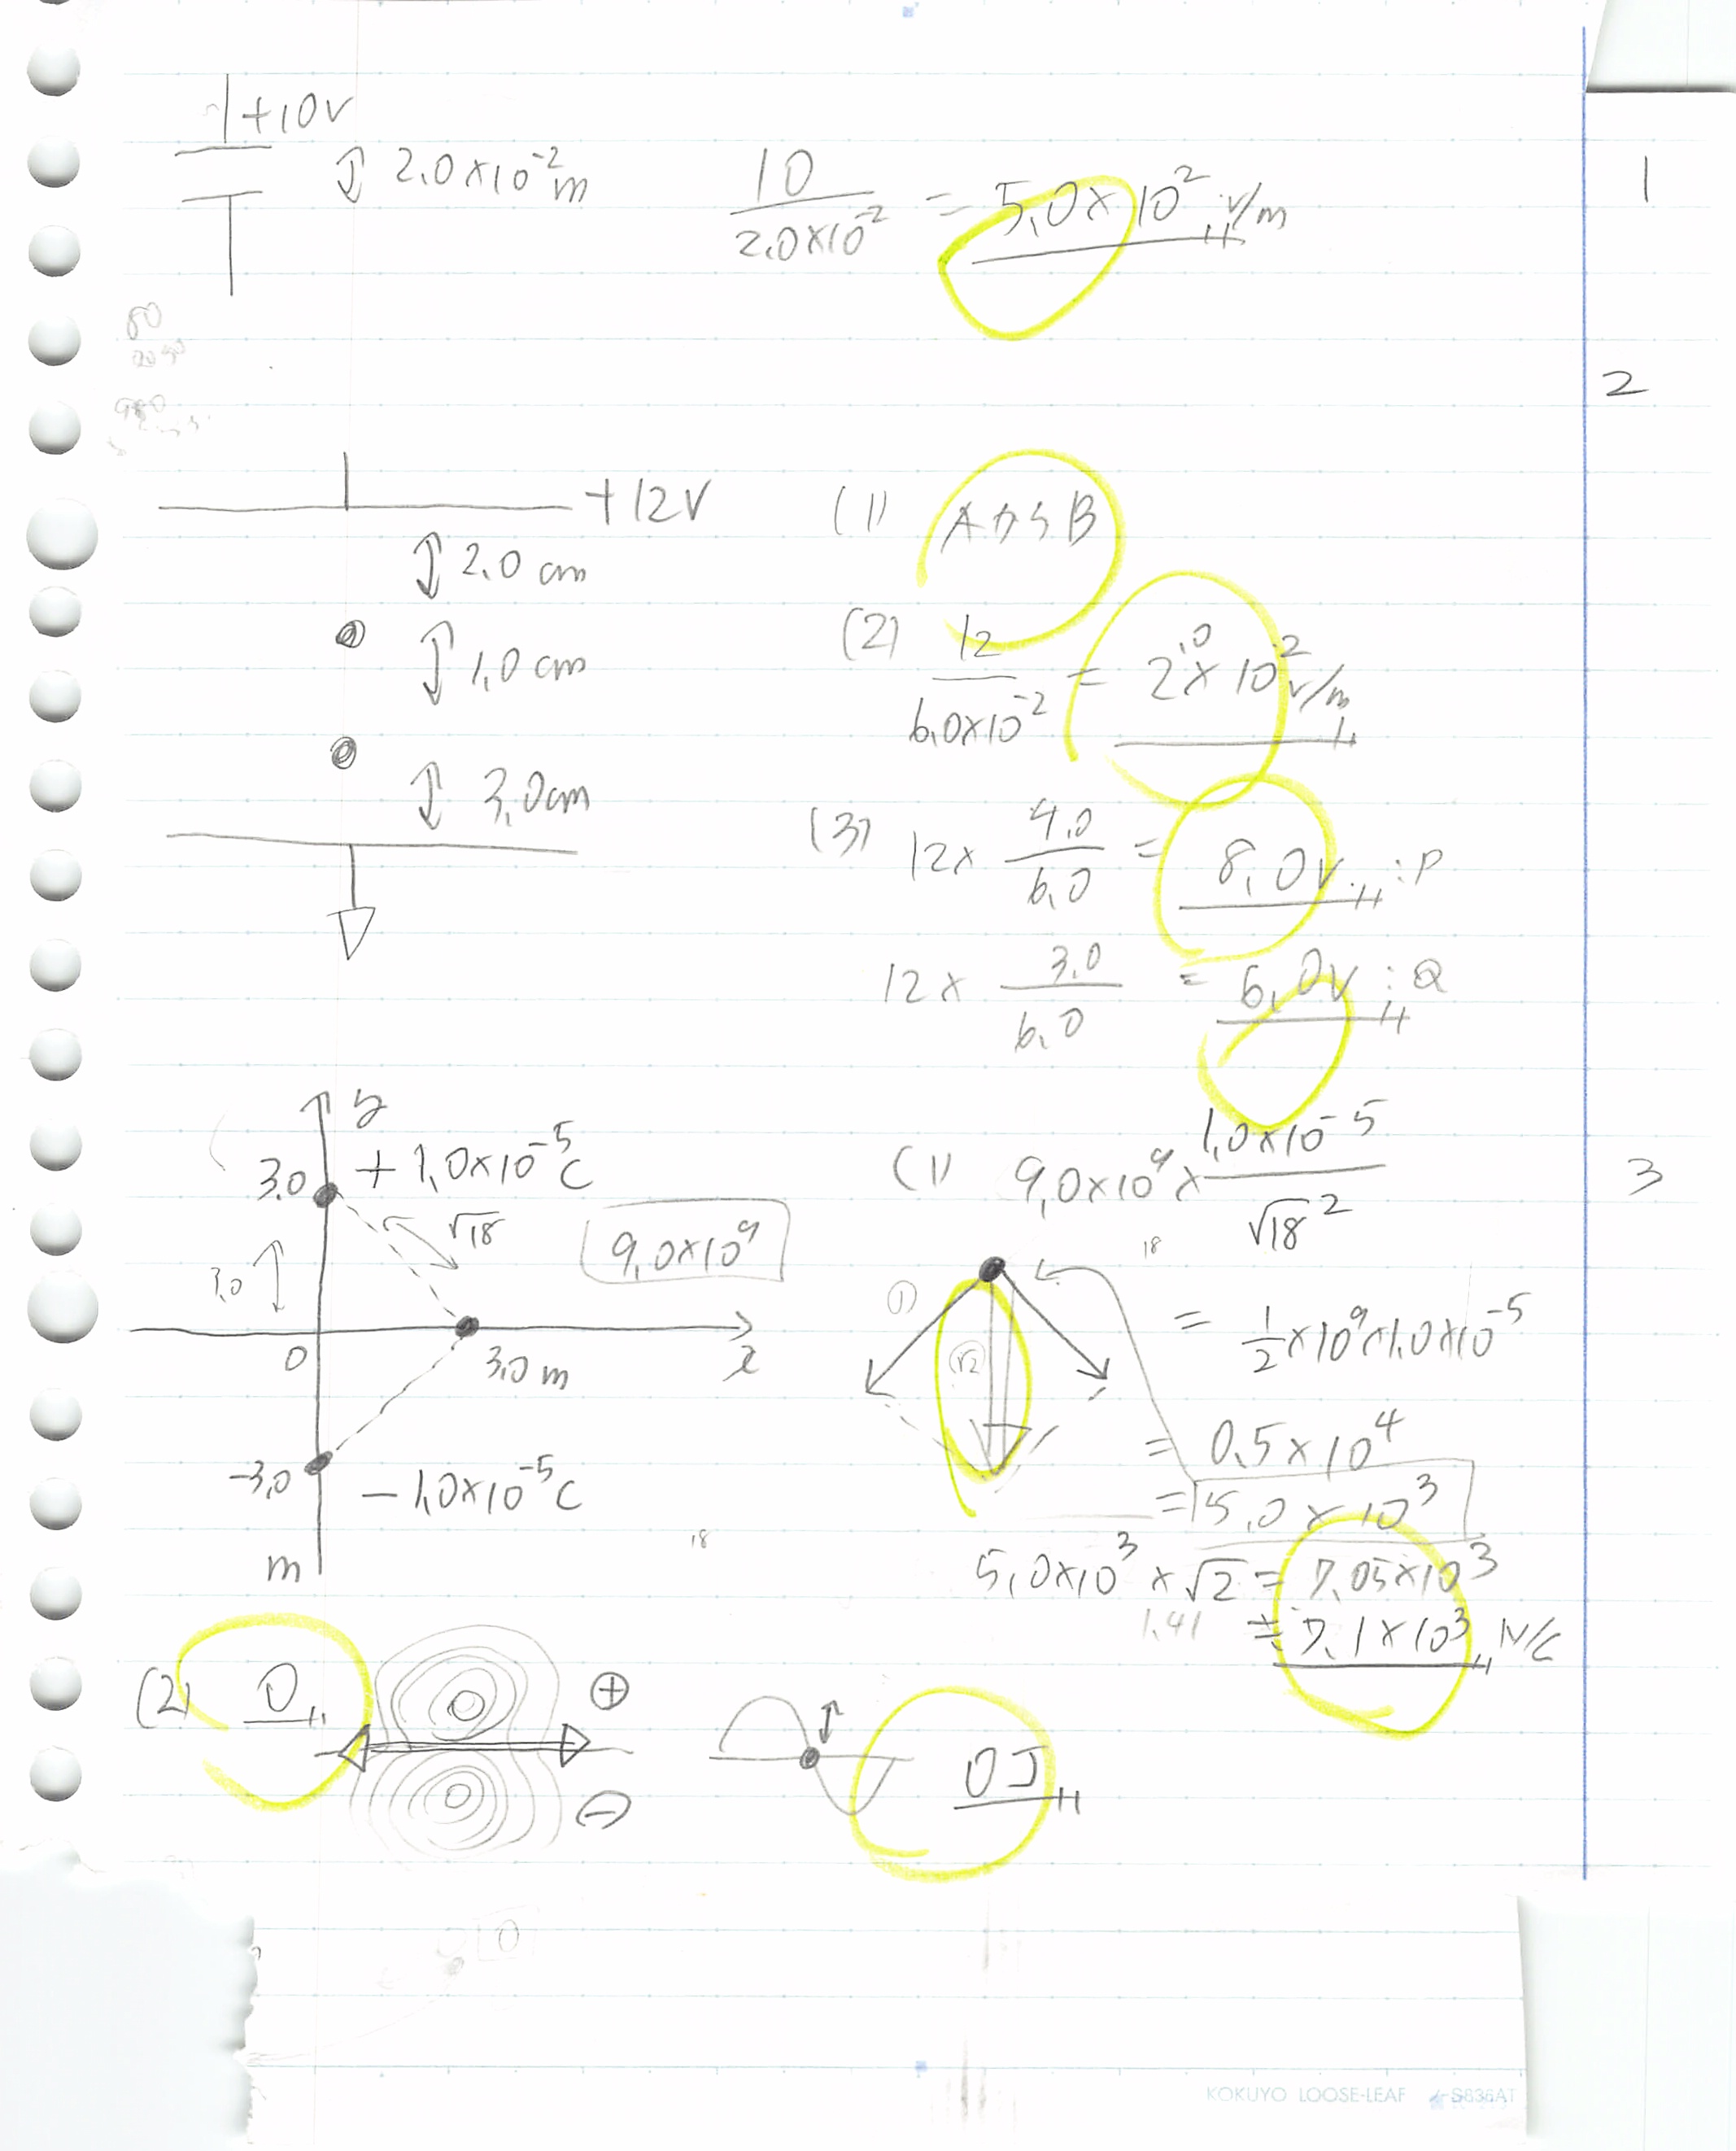 +10V
2.0×10⁻²m
10/2.0×10⁻² = 5.0×10² V/m
1
2
+12V
2.0 cm
1.0 cm
3.0cm
(1) AからB
(2) 12/6.0×10⁻² = 2.0×10² V/m
(3) 12× 4.0/6.0 = 8.0V :P
12× 3.0/6.0 = 6.0V :Q
3
y
3.0
+1.0×10⁻⁵C
√18
9.0×10⁹
3.0
0
3.0 m
x
-3.0
-1.0×10⁻⁵C
m
18
(1) 9.0×10⁹× 1.0×10⁻⁵/√18²
18
① √2
= 1/2×10⁹×1.0×10⁻⁵
= 0.5×10⁴
= 5.0×10³
5.0×10³×√2 = 7.05×10³
1.41 ≒ 7.1×10³ N/C
(2) 0
⊕
⊖
0J
0
KOKUYO LOOSE-LEAF ノ-S836AT